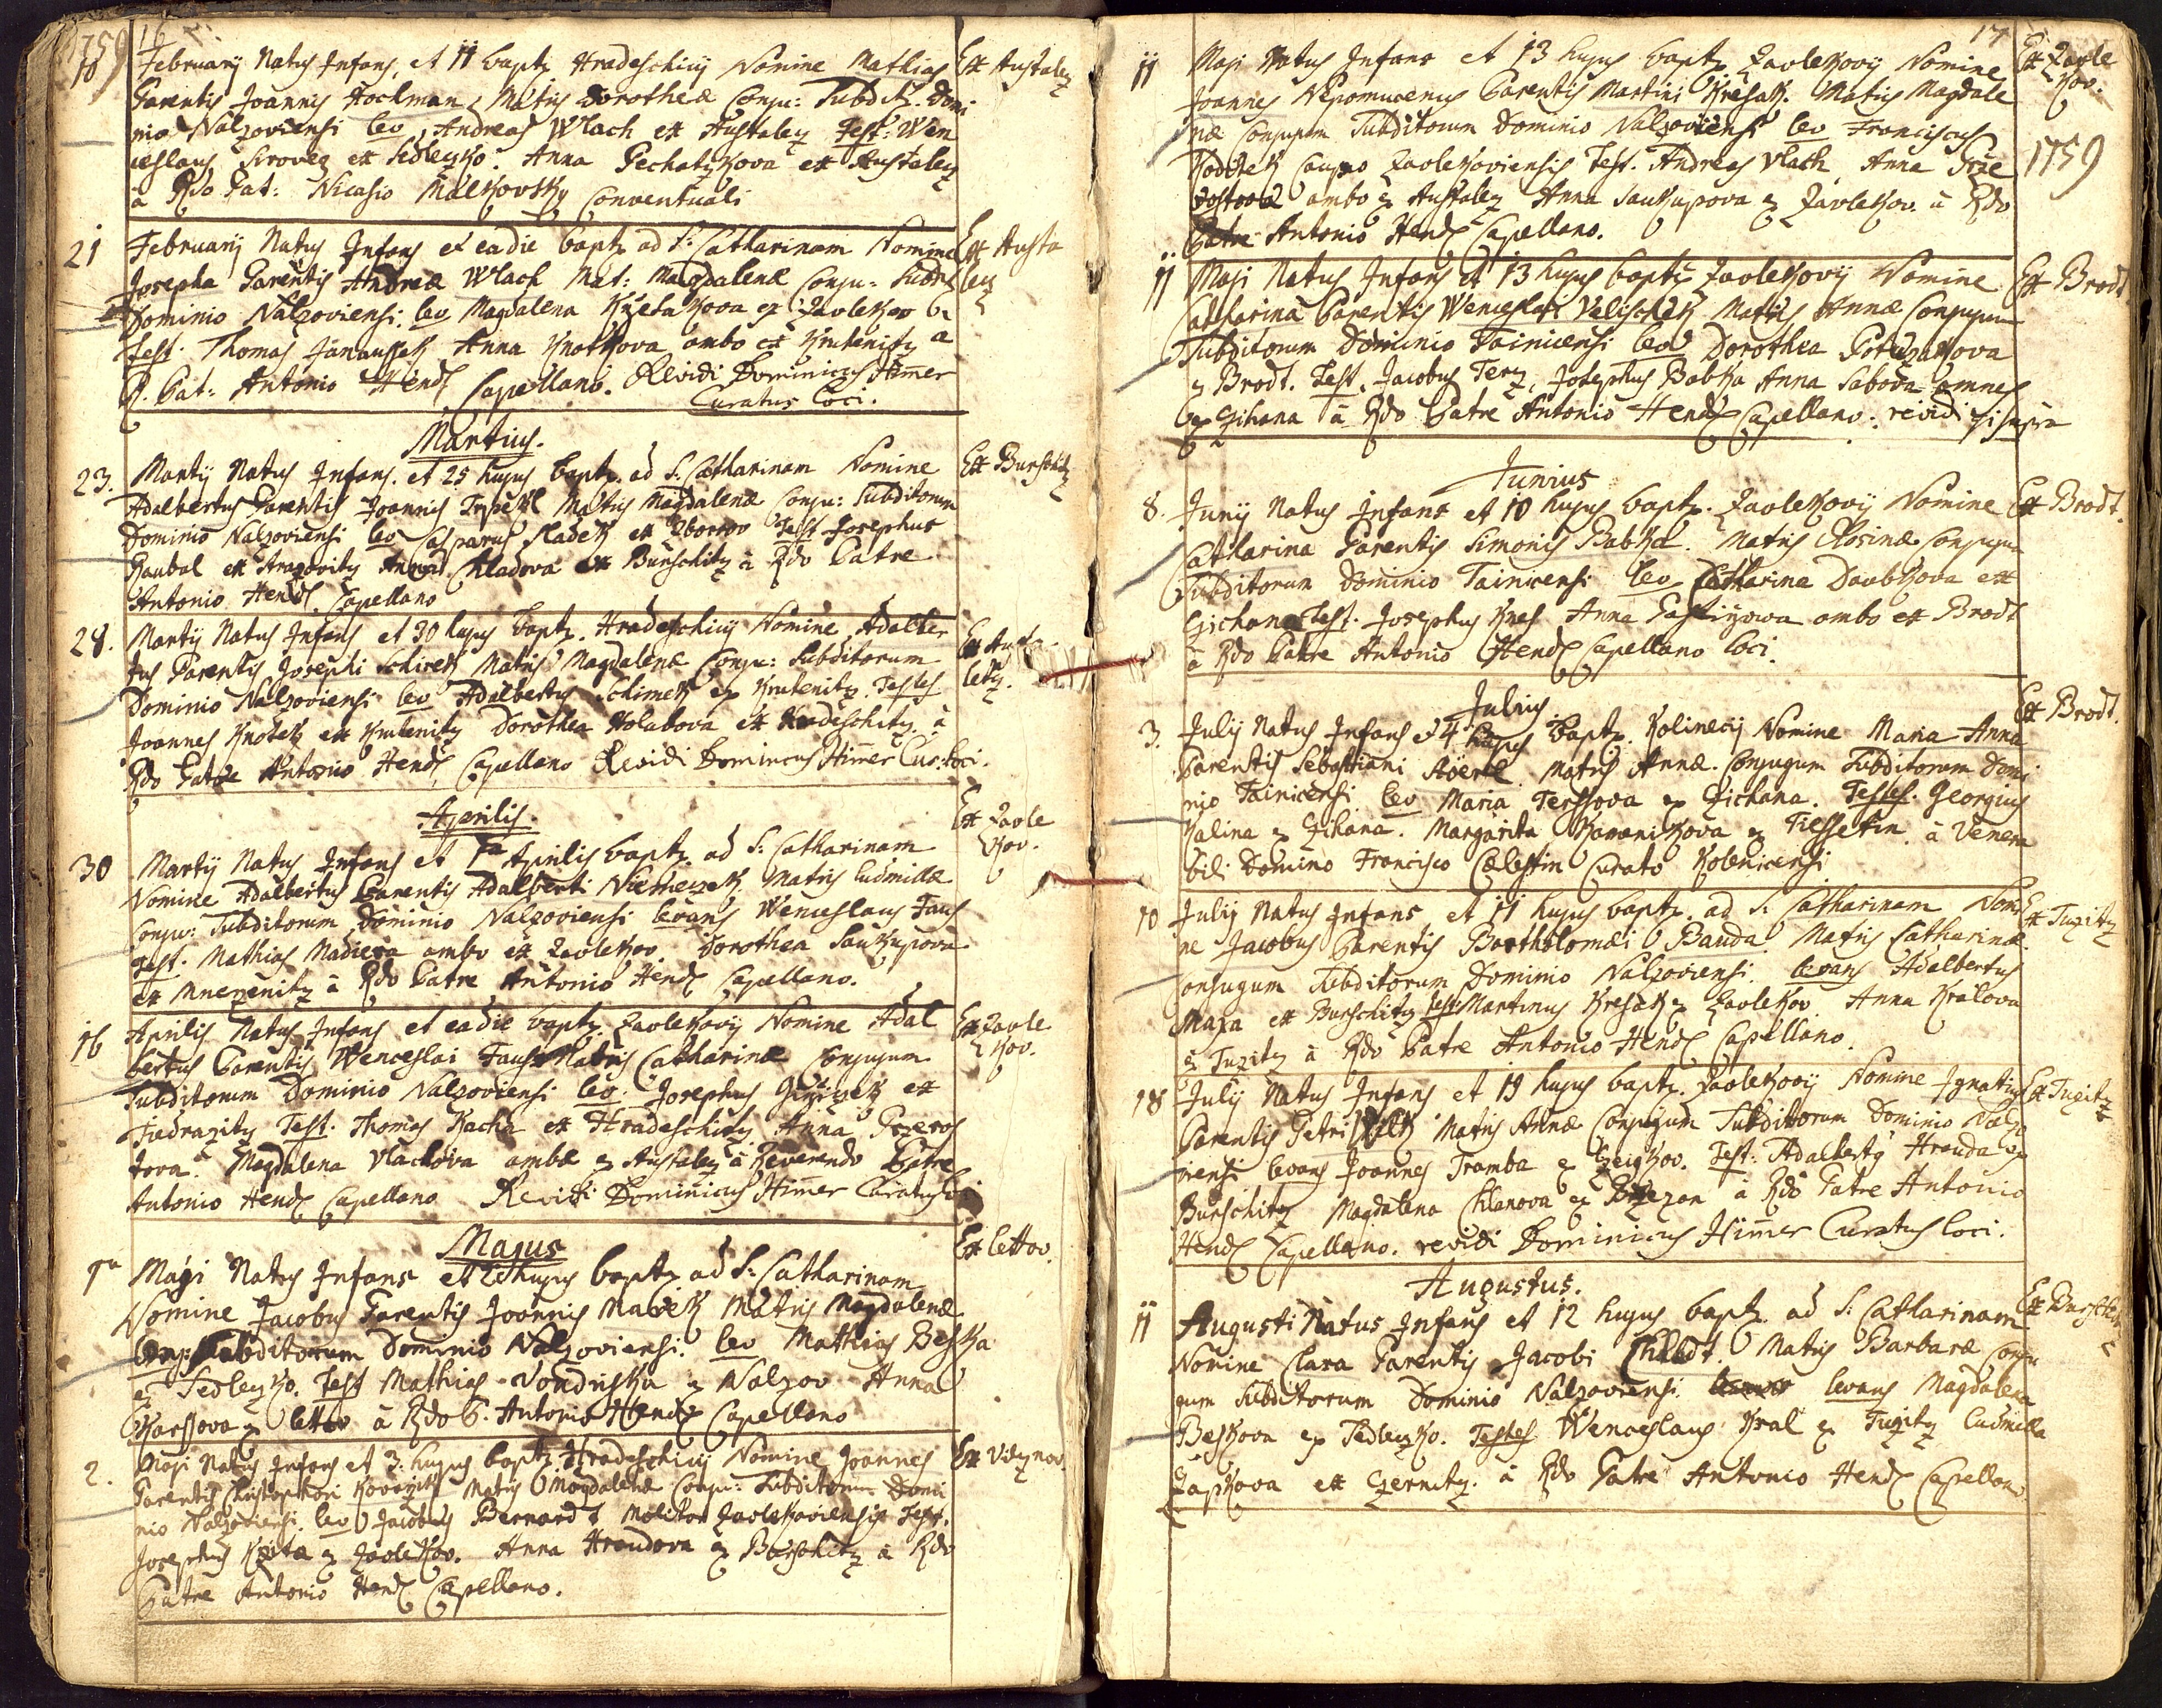 1759 16
10 February Natus Infans, et 11 bapt. Hradeschicij Nomine Mathias Ex Austaletz
Parentis Joannis Hockman Matris Dorotheæ Conju: Subdit. Domi
nio Nalzoviensi lev. Andreas Wlach ex Austaletz Test: Wen
ceslaus Siroveg ex Sedletzko. Anna Pechatzkova ex Austaletz
à Rdo Pat: Nicasio Malkovsky Conventuali
21 February Natus Infans et eadie bapt. ad S: Catharinam Nomine Ex Austa
Josepha Parentis Andreæ Wlach Mat: Magdalenæ Conju: Subdit letz
Dominio Nalzoviensi. lev Magdalena ex Zavlekov
Test. Thomas Janausseck Anna Knotkova ambo ex Krutenitz a
R. Pat: Antonio Hendl Capellano. Revidi Dominicus Himer
Curatus Loci.
Martius.
23. Martij Natus Infans. et 25 hujus bapt. ad S: Catharinam Nomine Ex Burschitz
Adalbertus Parentis Joannis Matris Magdalenæ Conju: Subditorum
Dominio Nalzoviensi lev Casparus Sladek ex Zborow Test Josephus
Kaubal ex Strazovitz Anna Chladova ex Burschitz à Rdo Patre
Antonio Hendl Capellano
28. Martij Natus Infans et 30 hujus bapt. Hradeschicij Nomine Adalber Ex Austa
tus Parentis Josephi Schimek Matris Magdalenæ Conju: Subditorum letz.
Dominio Nalzoviensi lev Adalbertus Schimek ex Krutenitz. Testes
Joannes Knotek ex Krutenitz Dorothea Holabova ex Hradeschitz à
Rdo Patre Antonio Hendl Capellano Revidi Dominicus Himer Cur: Loci.
Aprilis.
30 Martij Natus Infans et 1a Aprilis bapt. ad S: Catharinam Ex Zavle
Nomine Adalbertus Parentis Adalberti Niemeczek Matris Ludmillæ kov.
Conju: Subditorum Dominio Nalzoviensi levans Wenceslaus Faus
Test. Mathias Madiera ambo ex Zavlekov. Dorothea Saukupova
ex Mnezenitz à Rdo Patre Antonio Hendl Capellano.
16 Aprilis Natus Infans et eadie bapt. Zavlekovij Nomine Adal Ex Zavle
bertus Parentis Wenceslai Faus Matris Catharinæ Conjugum kov.
Subditorum Dominio Nalzoviensi lev. Josephus ex
Fiedrazitz Test. Thomas Kacha ex Hradeschitz Anna Przeros
tova Magdalena Vlachova ambæ ex Austaletz à Reverendo Patre
Antonio Hendl Capellano Revidi Dominicus Himer Curatus Loci
Majus
1a Maji Natus Infans et 2 hujus bapt. ad S: Catharinam Ex Lettov.
Nomine Jacobus Parentis Joannis Marek Matris Magdalenæ
Conj: Subditorum Dominio Nalzoviensi. lev Mathias Beska
ex Sedletzko. Test Mathias Vondriska ex Nalzov Anna
Karssova ex Lettov à Rdo P. Antonio Hendl Capellano
2. Maji Natus Infans et 3. hujus bapt. Hradeschicij Nomine Joannes
Parentis Christophori Matris Magdalenæ Conju: Subditorum Domi
nio Nalzoviensi. lev Jacobus Bernardt Molitor Zavlekoviensis Test.
Josephus ex Zavlekov. Anna Hraudova ex Burschitz à Rdo
Patre Antonio Hendl Capellano.
17
11 Maji Natus Infans et 13 hujus bapt. Zavlekovij Nomine Ex Zavle
Joannes Nepomucenus Parentis Martini Kresak. Matris Magdale kov.
næ Conjugum Subditorum Dominio Nalzoviensi lev Franciscus 1759
Caupo Zavlekoviensis Test. Andreas Vlach Anna Prze
rostova ambo ex Austaletz Anna Saukupova ex Zavlekov. à Rdo
Patre Antonio Hendl Capellano.
11 Maji Natus Infans et 13 hujus bapt. Zavlekovij Nomine Ex Brodt
Catharina Parentis Wenceslai Velischek Matris Annæ Conjugum
Subditorum Dominio Tainicensi lev Dorothea
ex Brodt. Test. Jacobus Josephus Babka Anna omnes
ex Gihana à Rdo Patre Antonio Hendl Capellano. revidi qui supra
Junius
8. Junij Natus Infans et 10 hujus bapt. Zavlekovij Nomine Ex Brodt.
Catharina Parentis Simonis Babka. Matris Rosinæ Conjugum
Subditorum Dominio Tainicensi lev Catharina Daubkova ex
Gichana Test. Josephus Knes Anna ambo ex Brodt
à Rdo Patre Antonio Hendl Capellano loci.
Julius
3. Julij Natus Infans et 4 hujus bapt. Kolinecij Nomine Maria Anna Ex Brodt.
Parentis Sebastiani Matris Annæ. Conjugum Subditorum Domi
nio Tainicensi lev Maria Terssova ex Gichana. Testes. Georgius
Kalina ex Gihana. Margarita ex Tiessetin à Venera
bili Domino Francisco Cælestin Curato Kolenicensi
10 Julij Natus Infans et 11 hujus bapt. ad S: Catharinam Nomi Ex Tuzitz
ne Jacobus Parentis Bartholomæi Bauda Matris Catharinæ
Conjugum Subditorum Dominio Nalzoviensi. levans Adalbertus
ex Burschitz Test: Martinus Kresak ex Zavlekov Anna Kralova
ex Tuzitz à Rdo Patre Antonio Hendl Capellano.
18 Julij Natus Infans et 19 hujus bapt. Zavlekovij Nomine Ignatius Ex Tugitz
Parentis Petri Matris Annæ Conjugum Subditorum Dominio Nalzo
viensi levans Joannes Tramba ex Test: Adalbertus Hrauda ex
Burschitz Magdalena à Rdo Patre Antonio
Hendl Capellano. revidi Dominicus Himer Curatus loci.
Augustus.
11 Augusti Natus Infans et 12 hujus bapt. ad S: Catharinam Ex Burschitz
Nomine Clara Parentis Jacobi Matris Barbaræ Conju
gum Subditorum Dominio Nalzoviensi levans Magdalena
Beskova ex Sedletzko. Testes Wenceslaus Kral ex Tugitz Ludmilla
ex Czernitz. à Rdo Patre Antonio Hendl Capellano